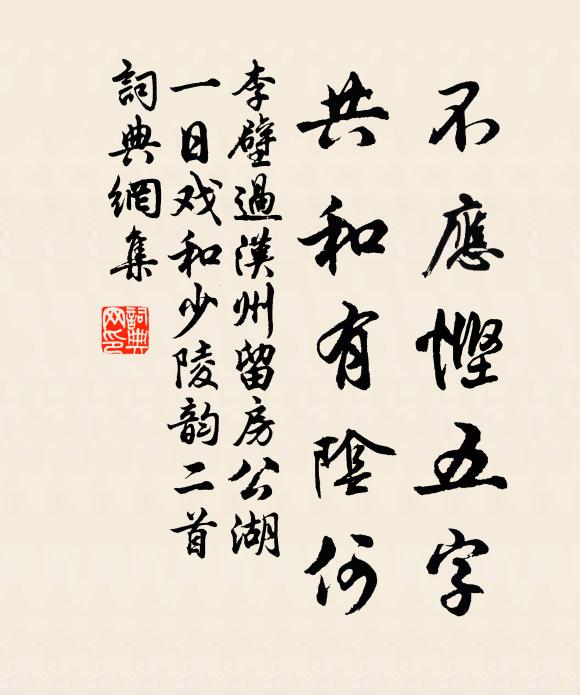 不應慳五字
共和有陰何
李壁過漢州留房公湖
一日戏和少陵韵二首
詞典網集
詞典网印